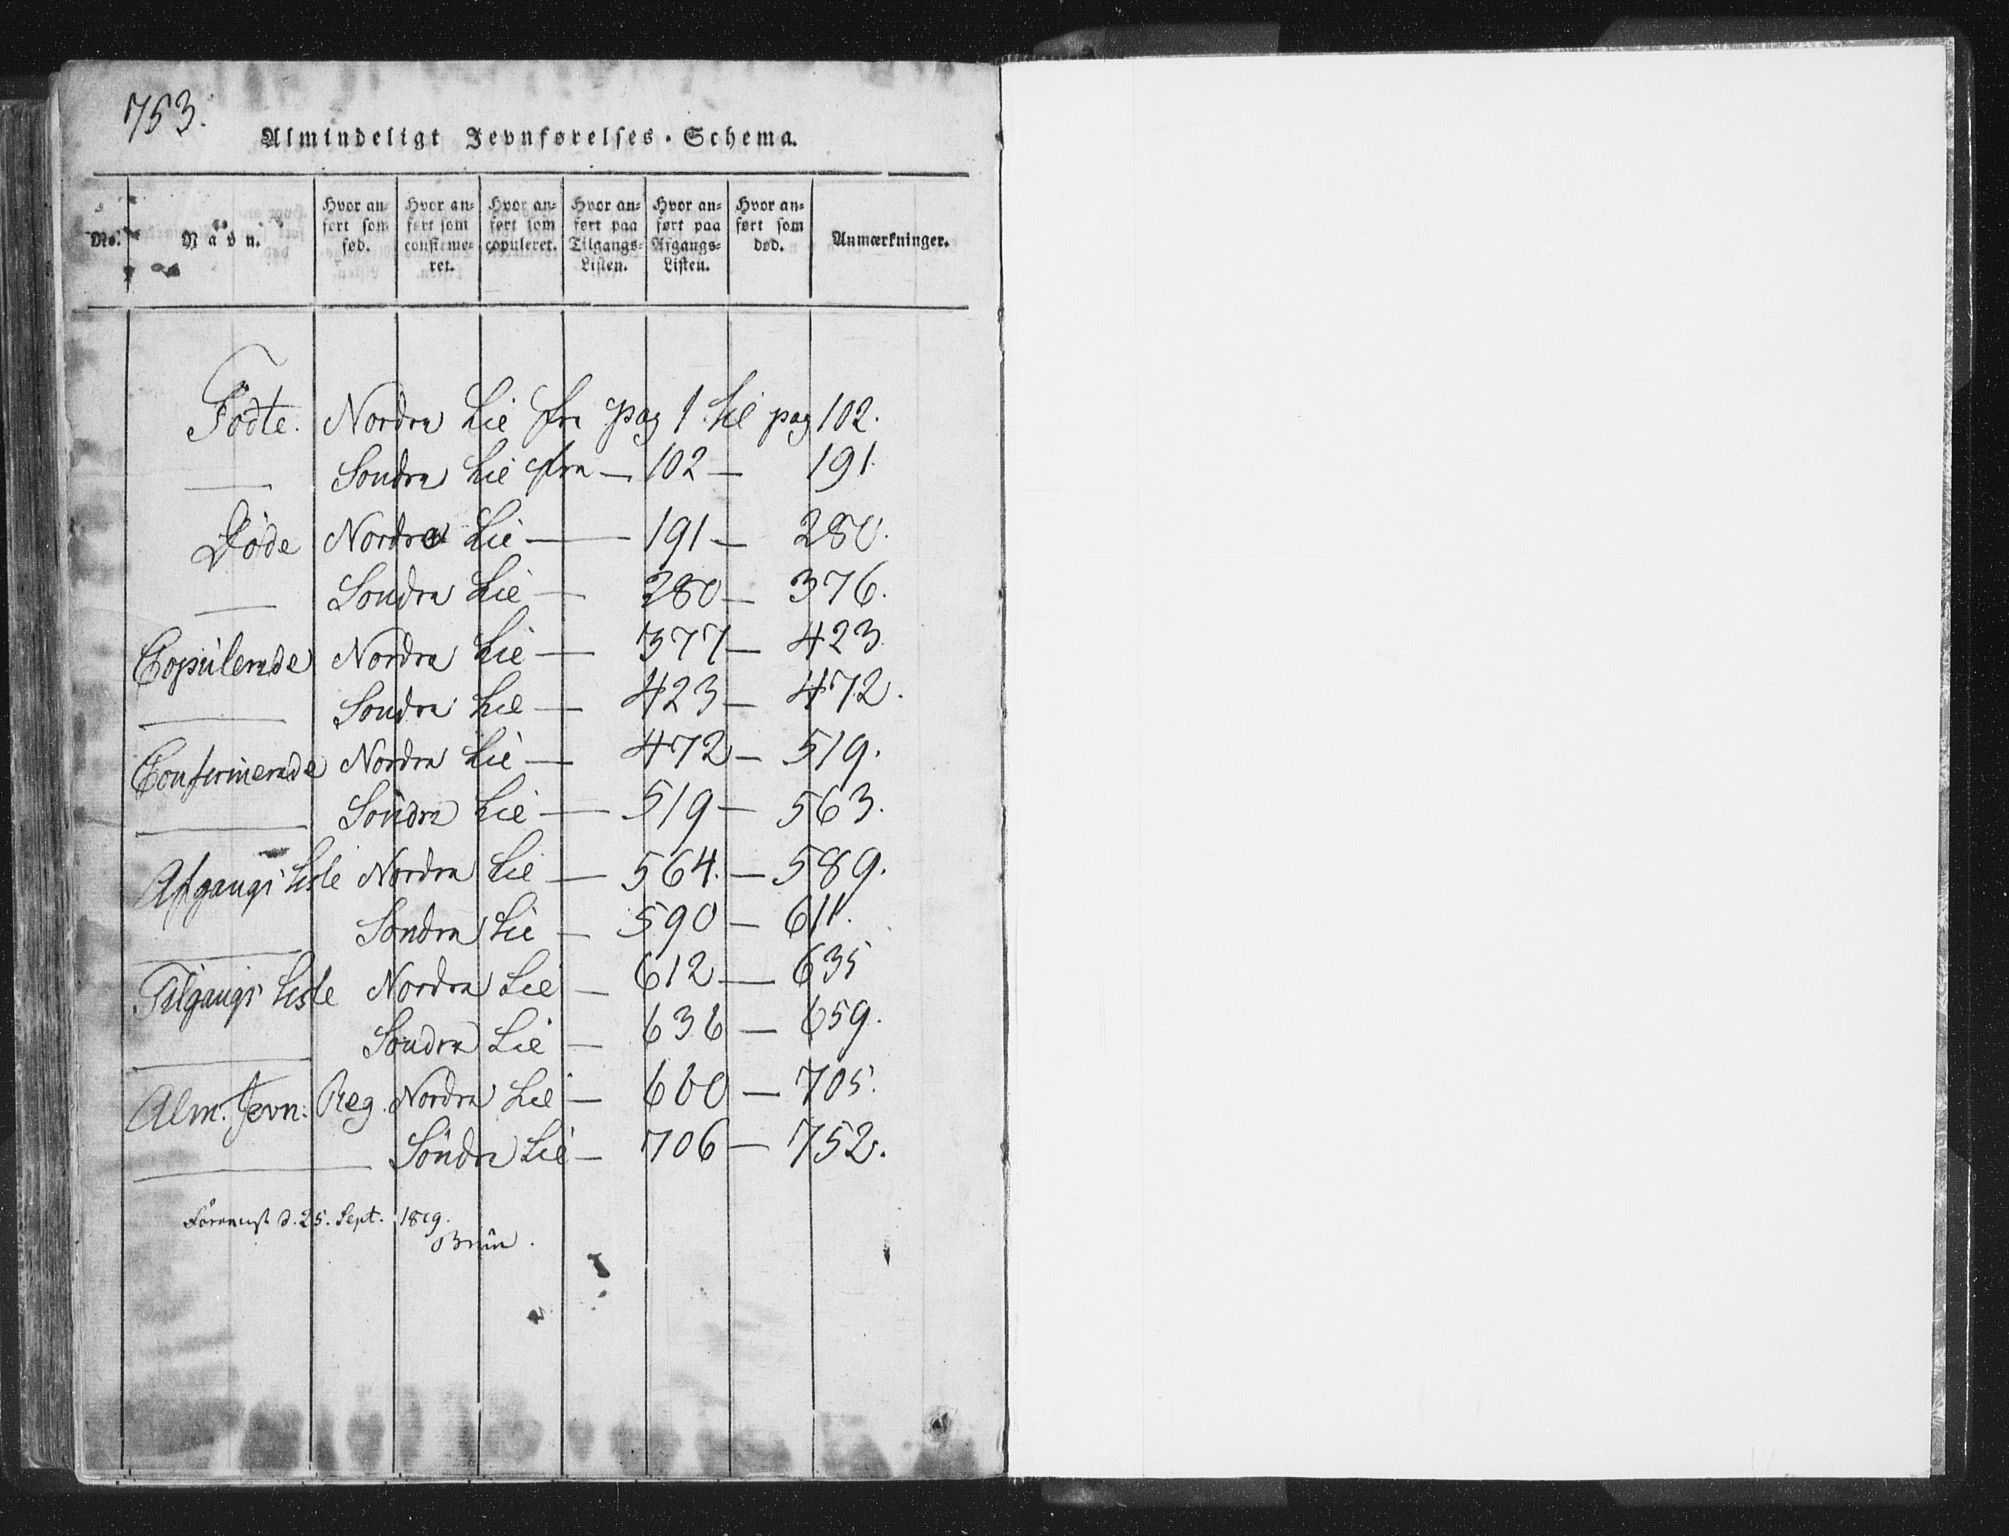 753.
Almindeligt Jevnførelses-Schema.
No.
Navn.
Hvor anført som fød.
Hvor anført som confirmeret.
Hvor anført som copuleret.
Hvor anført paa Tilgangs-Listen.
Hvor anført paa Afgangs-Listen.
Hvor anført som død.
Anmærkninger.
Födte. Nordra Lie fra pag 1 til pag 102.
— Sondra Lie fra — 102 — 191.
Döde Nordre Lie — 191 — 280.
— Sondra Lie — 280 — 376.
Copulerade Nordra Lie — 377 — 423
— Sondra Lie — 423 — 472.
Confirmerade Nordra Lie — 472 — 519.
— Söndra Lie — 519 — 563.
Afgangs Liste Nordra Lie — 564. — 589.
— Sondra Lie — 590 — 611.
Tilgangs Liste Nordra Lie — 612 — 635
— Sondra Lie — 636 — 659.
Alm. Jevn: Reg. Nordra Lie — 660 — 705.
— Söndra Lie — 706 — 752.
d. 25. Sept. 1819.
Brun.